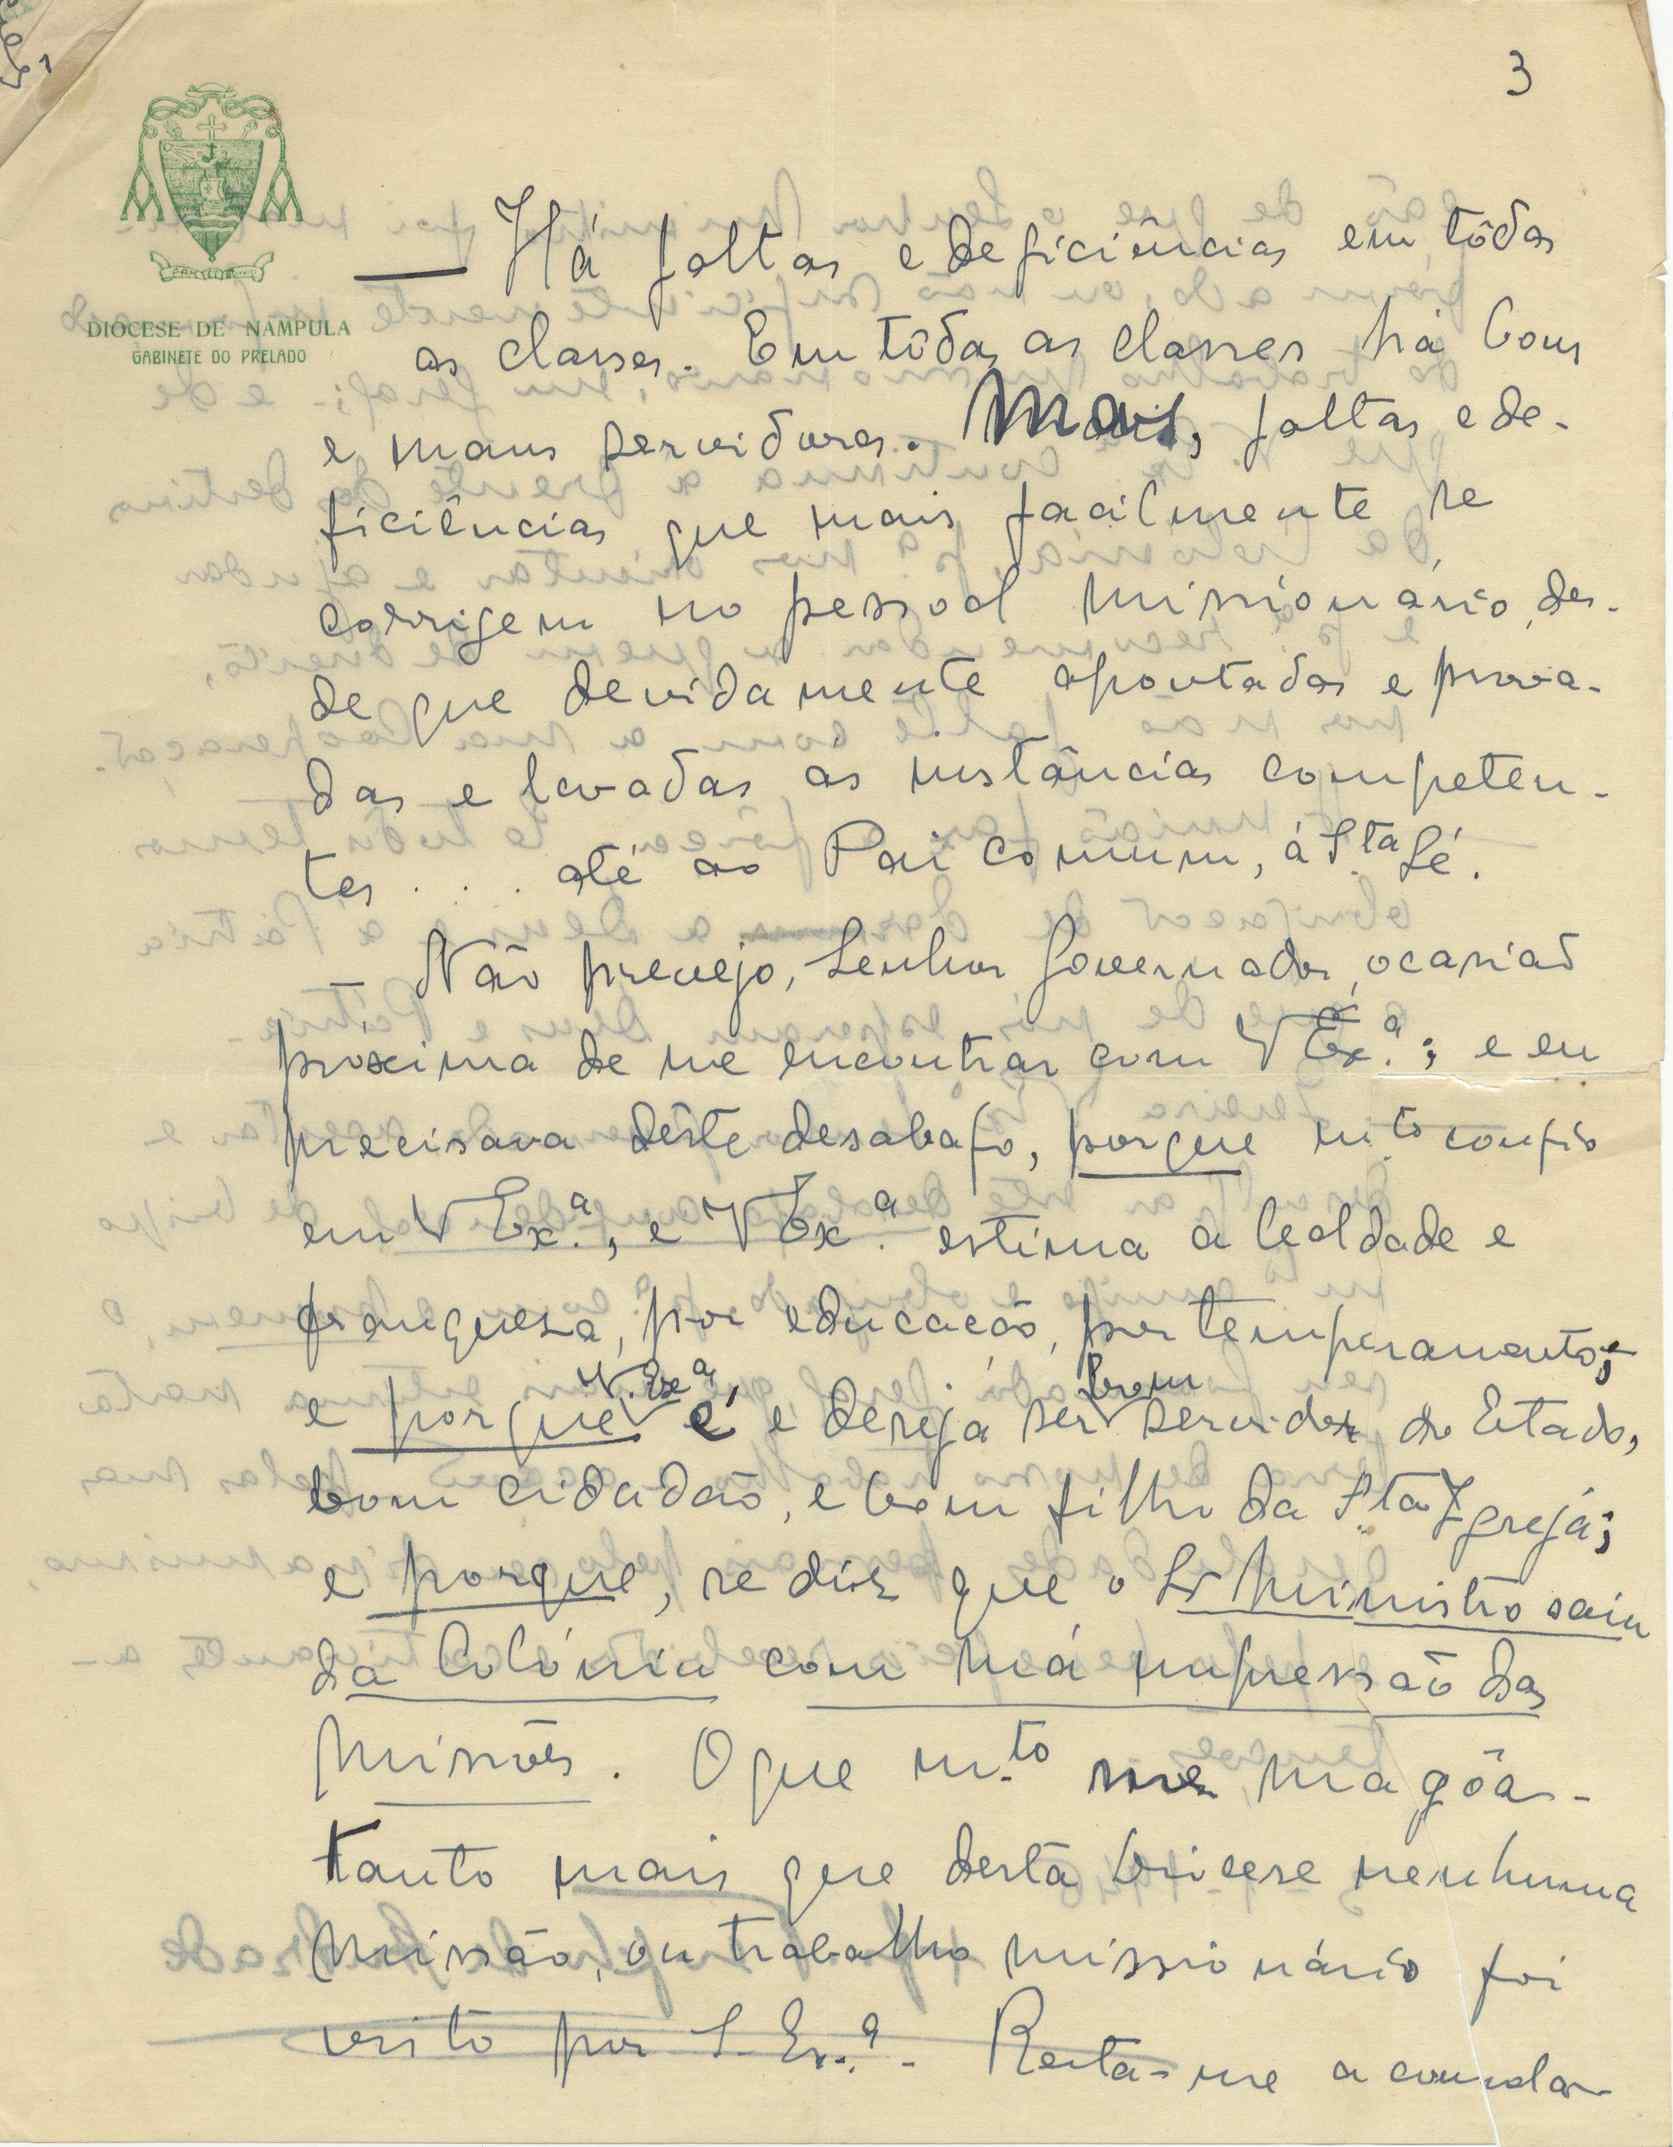 3
DIOCESE DE NAMPULA
GABINETE DO PRELADO
— Há faltas e deficiências em tôdas
as classes. Em tôdas as classes há bons
e maus servidores. Mas, faltas e de-
ficiências que mais facilmente se
corrigem no pessoal missionário, des-
de que devidamente apontadas e prova-
das e levadas as instâncias competen-
tes . . . até ao Pai comum, á S.ta Sé.
— Não prevejo, Senhor Governador, ocasião
proxima de me encontrar com V Ex.ª; e eu
precisava dêste desabafo, porque m.to confio
em V Ex.ª, e V Ex.ª estima a lealdade e
franquesa, por educação, por temperamento;
e porque V. Ex.ª é e deseja ser bom servidor do Estado,
bom cidadão, e bom filho da S.ta Igreja;
e porque, se diz que o Sr Ministro saiu
da Colónia com má impressão das
Missões. O que m.to me magôa -
tanto mais que desta Diocese nenhuma
Missão, ou trabalho missionário foi
visto por S. Ex.ª. Resta-me a consola-